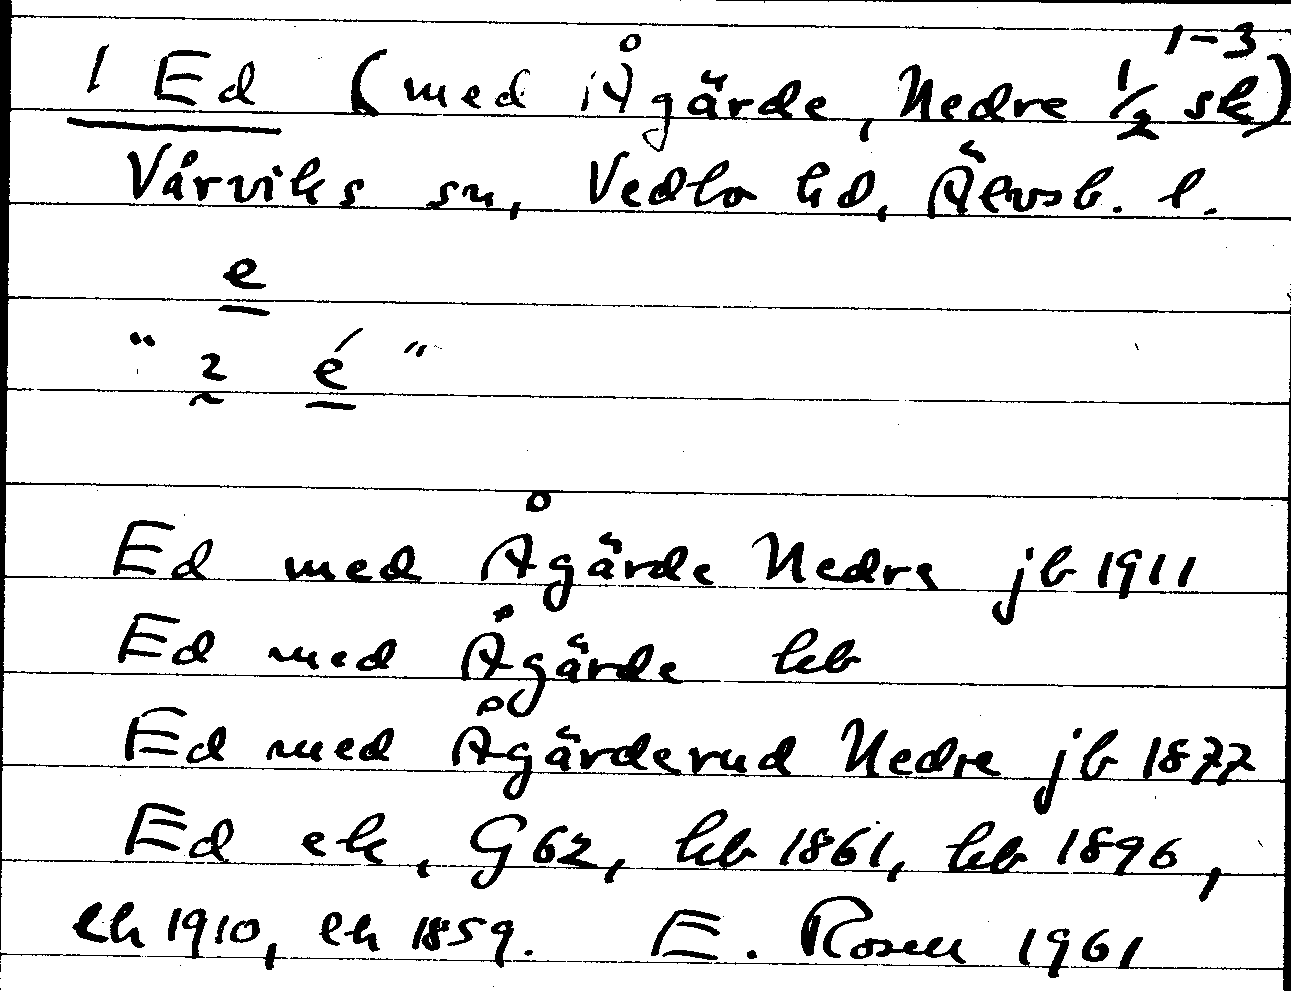 1-3
1 Ed (med Ågärde, Nedre 1/2 sk)
Vårviks sn, Vedbo hd, Älvsb. l.
e
" 2 é "
Ed med Ågärde Nedre jb 1911
Ed med Ågärde kb
Ed med Ågärderud Nedre jb 1877
Ed ek, G62, kb 1861, kb 1896,
ek 1910, ek 1859. E. Rosell 1961